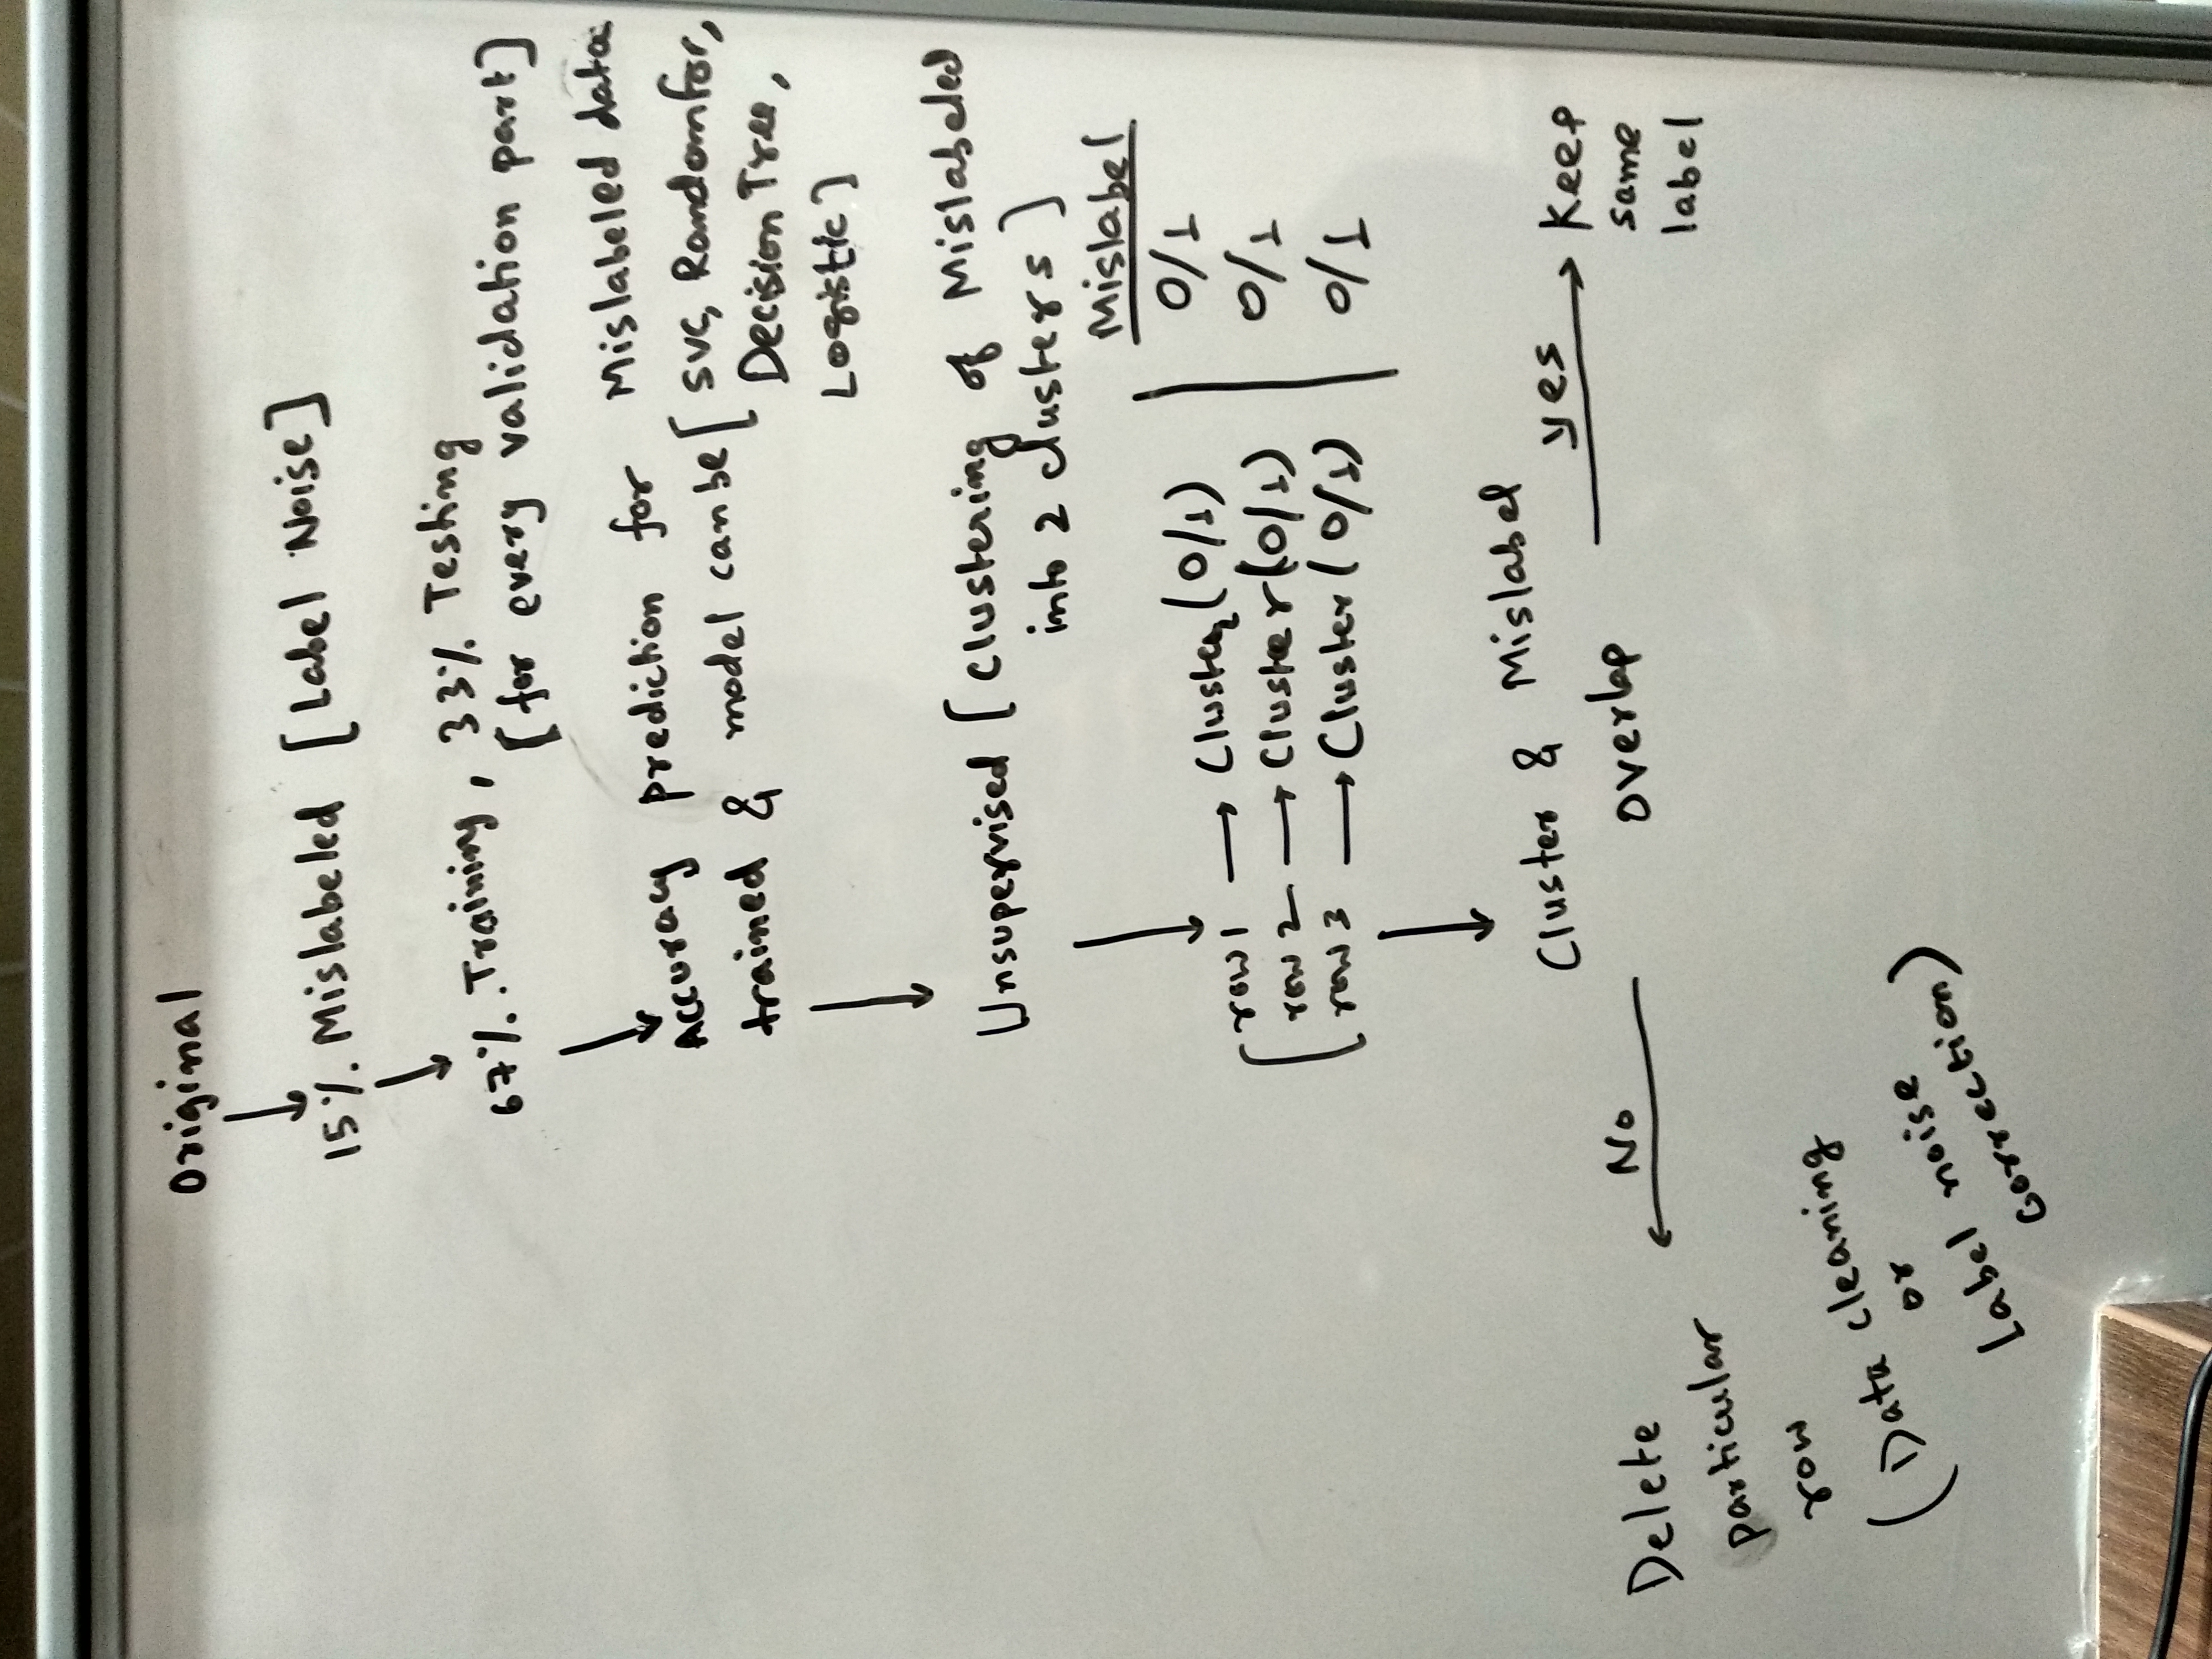 Original
15% Mislabeled [Label Noise]
67% Training, 33% Testing
[for every validation part]
Accuracy prediction for Mislabeled data
trained & model can be [SVC, Randomfor,
Decision Tree,
Logistic]
Unsupervised [Clustering of Mislabeled
into 2 clusters]
Mislabel
row 1 → Cluster (0/1) | 0/1
row 2 → Cluster (0/1) | 0/1
row 3 → Cluster (0/1) | 0/1
Cluster & Mislabel
overlap
yes → Keep
same
label
No
Delete
particular
row
(Data cleaning
or
Label noise
correction)